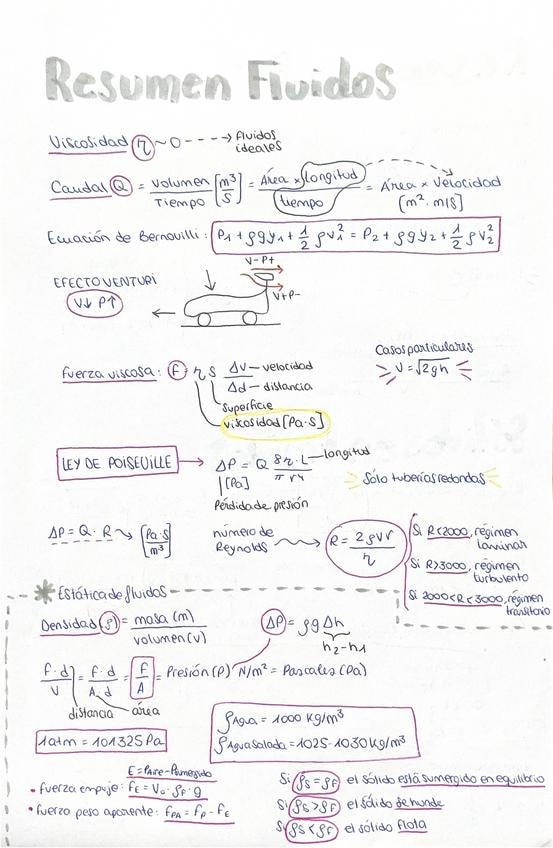 Resumen Fluidos
Viscosidad η ~ 0 ---→ fluidos ideales
Caudal Q = volumen / Tiempo [m³/s] = Área × longitud / tiempo = Área × Velocidad [m² · m/s]
Ecuación de Bernouilli: P₁ + ρgy₁ + 1/2 ρv₁² = P₂ + ρgy₂ + 1/2 ρv₂²
EFECTO VENTURI
V↓ P↑
V- P+
V+ P-
Casos particulares
V = √2gh
fuerza viscosa: f = η S Δv / Δd
velocidad
distancia
superficie
viscosidad [Pa·s]
LEY DE POISEUILLE → ΔP = Q 8η·L / π r⁴
longitud
[Pa]
Pérdida de presión
Sólo tuberías redondas
ΔP = Q · R → [Pa·s / m³]
número de Reynolds → R = 2ρvr / η
Si R<2000, régimen laminar
Si R>3000, régimen turbulento
Si 2000<R<3000, régimen transitorio
* Estática de fluidos
Densidad ρ = masa (m) / volumen (v)
ΔP = ρg Δh
h₂-h₁
f·d / V = f·d / A·d = f / A = Presión (P) N/m² = Pascales (Pa)
distancia
área
1atm = 101325 Pa
ρAgua = 1000 Kg/m³
ρAgua Salada = 1025-1030 Kg/m³
E = PAire - Psumergido
• fuerza empuje: fE = V₀ · ρF · g
• fuerza peso aparente: fPA = fP - fE
Si ρS = ρF el sólido está sumergido en equilibrio
Si ρS > ρF el sólido se hunde
Si ρS < ρF el sólido flota